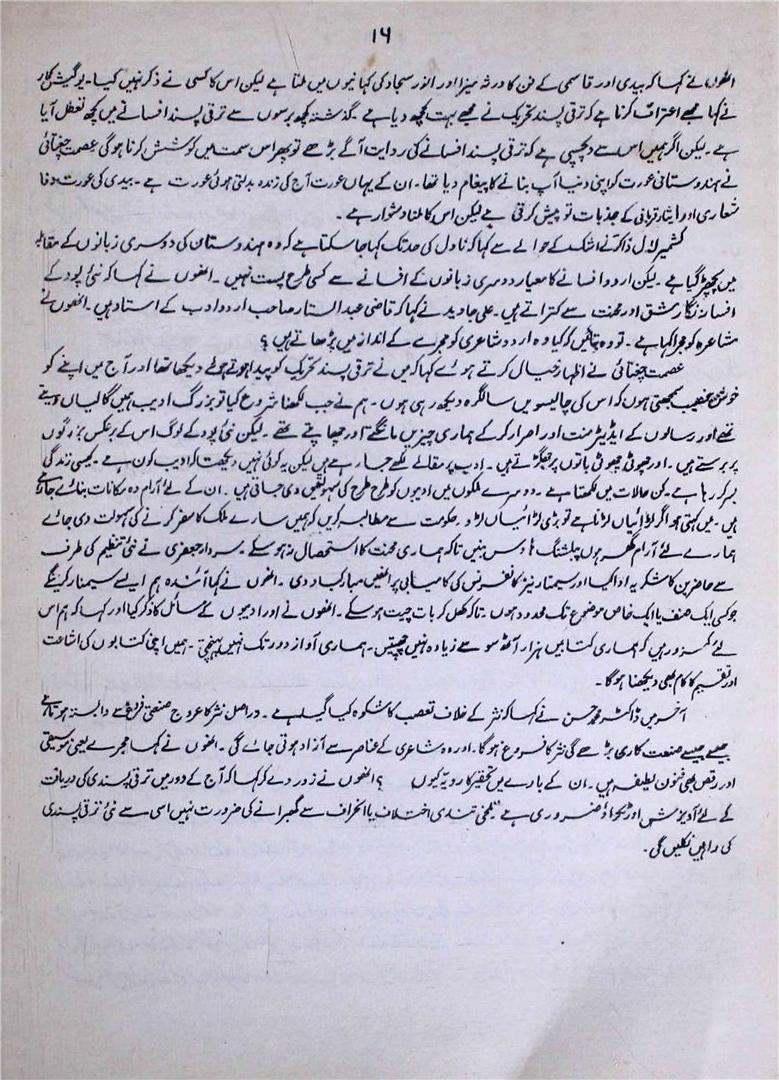 ۱۶
انھوں نے کہا کہ بیدی اور قاسمی کے فن کا ورثہ میزا اور انور سجاد کی کہانیوں میں ملتا ہے لیکن اس کا کسی نے ذکر نہیں کیا۔ یوگیش کمار
نے کہا مجھے اعتراف کرنا ہے کہ ترقی پسند تحریک نے مجھے بہت کچھ دیا ہے۔ گذشتہ کچھ برسوں سے ترقی پسند افسانے میں کچھ تعطل آیا
ہے۔ لیکن اگر ہمیں اس سے دلچسپی ہے کہ ترقی پسند افسانے کی روایت آگے بڑھے تو پھر اس سمت میں کوشش کرنا ہوگی عصمت چغتائی
نے ہندوستانی عورت کو اپنی دنیا آپ بنانے کا پیغام دیا تھا۔ ان کے یہاں عورت آج کی زندہ بدلتی ہوئی عورت ہے۔ بیدی کی عورت وفا
شعاری اور ایثار قربانی کے جذبات تو پیش کرتی ہے لیکن اس کا ملنا دشوار ہے۔
کشمیری لال ذاکر نے اشک کے حوالے سے کہا کہ ناول کی حد تک کہا جا سکتا ہے کہ وہ ہندوستان کی دوسری زبانوں کے مقابلہ
میں پچھڑ گیا ہے۔ لیکن اردو افسانے کا معیار دوسری زبانوں کے افسانے سے کسی طرح پست نہیں۔ انھوں نے کہا کہ نئی پود کے
افسانہ نگار مشق اور محنت سے کتراتے ہیں۔ علی جاوید نے کہا کہ قاضی عبد الستار صاحب اردو ادب کے استاد ہیں۔ انھوں نے
مشاعرہ کو مجرا کہا ہے۔ تو وہ بتائیں کہ کیا وہ اردو شاعری کو مجرے کے انداز میں پڑھاتے ہیں ؟
عصمت چغتائی نے اظہار خیال کرتے ہوئے کہا کہ میں نے ترقی پسند تحریک کو پیدا ہوتے ہوئے دیکھا تھا اور آج میں اپنے کو
خوش نصیب سمجھتی ہوں کہ اس کی چالیسویں سالگرہ دیکھ رہی ہوں۔ ہم نے جب لکھنا شروع کیا تو بزرگ ادیب ہمیں گالیاں دیتے
تھے اور رسالوں کے ایڈیٹر منت اور اصرار کر کے ہماری چیزیں مانگتے اور چھاپتے تھے۔ لیکن نئی پود کے لوگ اس کے برعکس بزرگوں
پر برستے ہیں۔ اور چھوٹی چھوٹی باتوں پر جھگڑتے ہیں۔ ادب پر مقالے لکھے جا رہے ہیں لیکن یہ کوئی نہیں دیکھتا کہ ادیب کون ہے۔ کیسی زندگی
بسر کر رہا ہے۔ کن حالات میں لکھتا ہے۔ دوسرے ملکوں میں ادیبوں کو طرح طرح کی سہولتیں دی جاتی ہیں۔ ان کے لئے آرام دہ مکانات بنائے جاتے
ہیں۔ میں کہتی ہوں اگر لڑائیاں لڑنا ہے تو بڑی لڑائیاں لڑو۔ حکومت سے مطالبہ کریں کہ ہمیں سارے ملک کا سفر کرنے کی سہولت دی جائے
ہمارے لئے آرام گھر ہوں پبلشنگ ہاؤس بنیں تاکہ ہماری محنت کا استحصال نہ ہو سکے۔ سردار جعفری نے نئی تنظیم کی طرف
سے حاضرین کا شکریہ ادا کیا اور سیمینار نیز کانفرنس کی کامیابی پر انھیں مبارکباد دی۔ انھوں نے کہا آئندہ ہم ایسے سیمنار کریں گے
جو کسی ایک صنف یا ایک خاص موضوع تک محدود ہوں۔ تاکہ کھل کر بات چیت ہو سکے۔ انھوں نے اور ادیبوں کے مسائل کا ذکر کیا اور کہا کہ ہم اس
لئے کمزور ہیں کہ ہماری کتابیں ہزار آٹھ سو سے زیادہ نہیں چھپتیں۔ ہماری آواز دور تک نہیں پہنچتی۔ ہمیں اپنی کتابوں کی اشاعت
اور تقسیم کا کام بھی دیکھنا ہوگا۔
آخر میں ڈاکٹر محمد حسن نے کہا کہ نثر کے خلاف تعصب کا شکوہ کیا گیا ہے۔ دراصل نثر کا عروج صنعتی فروغ سے وابستہ ہوتا ہے
جیسے جیسے صنعت کاری بڑھے گی نثر کا فروغ ہوگا۔ اور وہ شاعری کے عناصر سے آزاد ہوتی جائے گی۔ انھوں نے کہا مجرے یعنی موسیقی
اور رقص بھی فنون لطیفہ ہیں۔ ان کے بارے میں تحقیر کا رویہ کیوں ؟ انھوں نے زور دے کر کہا کہ آج کے دور میں ترقی پسندی کی دریافت
کے لئے آویزش اور ٹکراؤ ضروری ہے تلخی تندی اختلاف یا انحراف سے گھبرانے کی ضرورت نہیں اسی سے نئی ترقی پسندی
کی راہیں نکلیں گی۔